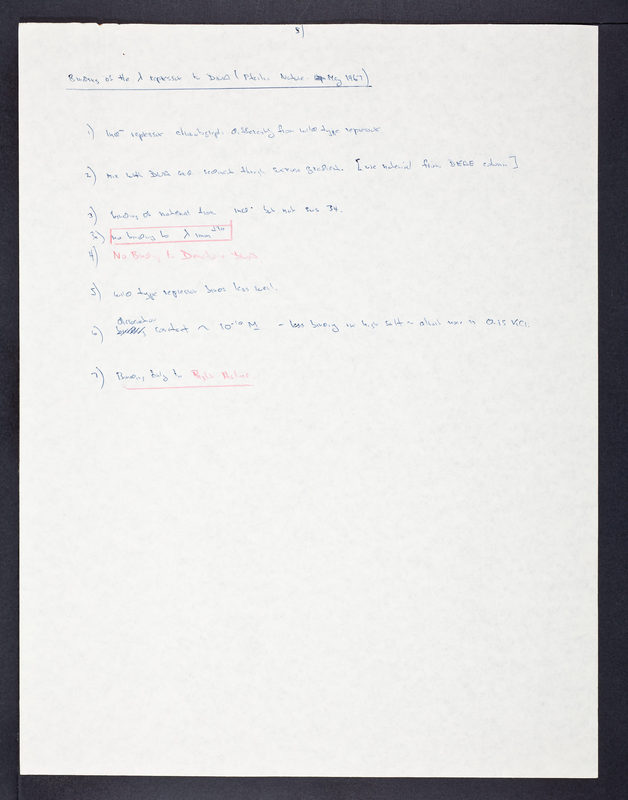 8)
Binding of the λ repressor to DNA (Ptashne Nature May 1967)
1) ind⁻ repressor chromatographs differently from wild type repressor
2) mix with DNA and sediment through sucrose gradient. [use material from DEAE column]
3) binding of material from ind⁻ but not sus 34.
3a) no binding to λ imm⁴³⁴
4) No Binding to Denatured DNA.
5) wild type repressor binds less well.
6) dissociation constant ~ 10⁻¹⁰ M - less binding in high salt ~ almost none in 0.15 KCl.
7) Binding only to